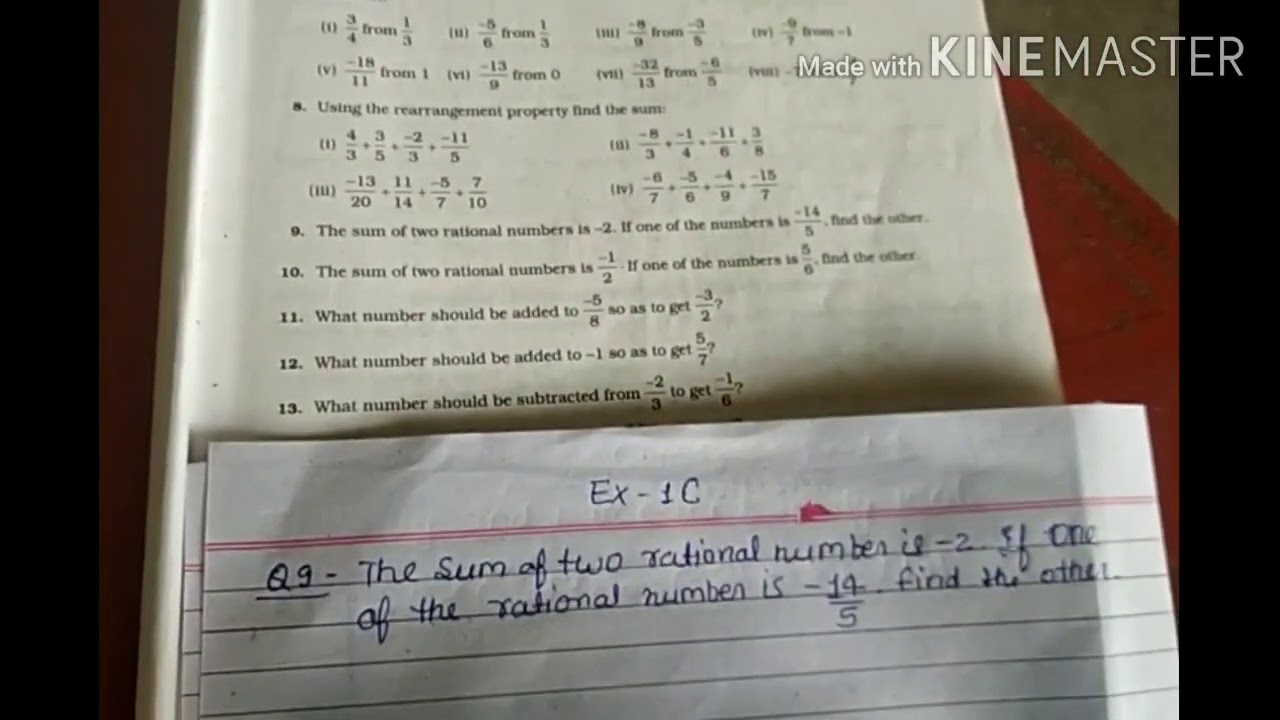 (i) 3/4 from 1/3 (ii) -5/6 from 1/3 (iii) -8/9 from -3/5 (iv) -9/7 from -1
(v) -18/11 from 1 (vi) -13/9 from 0 (vii) -32/13 from -6/5 (viii)
Made with KINEMASTER
8. Using the rearrangement property find the sum:
(i) 4/3 + 3/5 + -2/3 + -11/5 (ii) -8/3 + -1/4 + -11/6 + 3/8
(iii) -13/20 + 11/14 + -5/7 + 7/10 (iv) -6/7 + -5/6 + -4/9 + -15/7
9. The sum of two rational numbers is -2. If one of the numbers is -14/5, find the other.
10. The sum of two rational numbers is -1/2. If one of the numbers is 5/6, find the other.
11. What number should be added to -5/8 so as to get -3/2?
12. What number should be added to -1 so as to get 5/7?
13. What number should be subtracted from -2/3 to get -1/6?
Ex - 1C
Q9 - The sum of two rational number is -2 If one
of the rational number is -14/5. find the other.